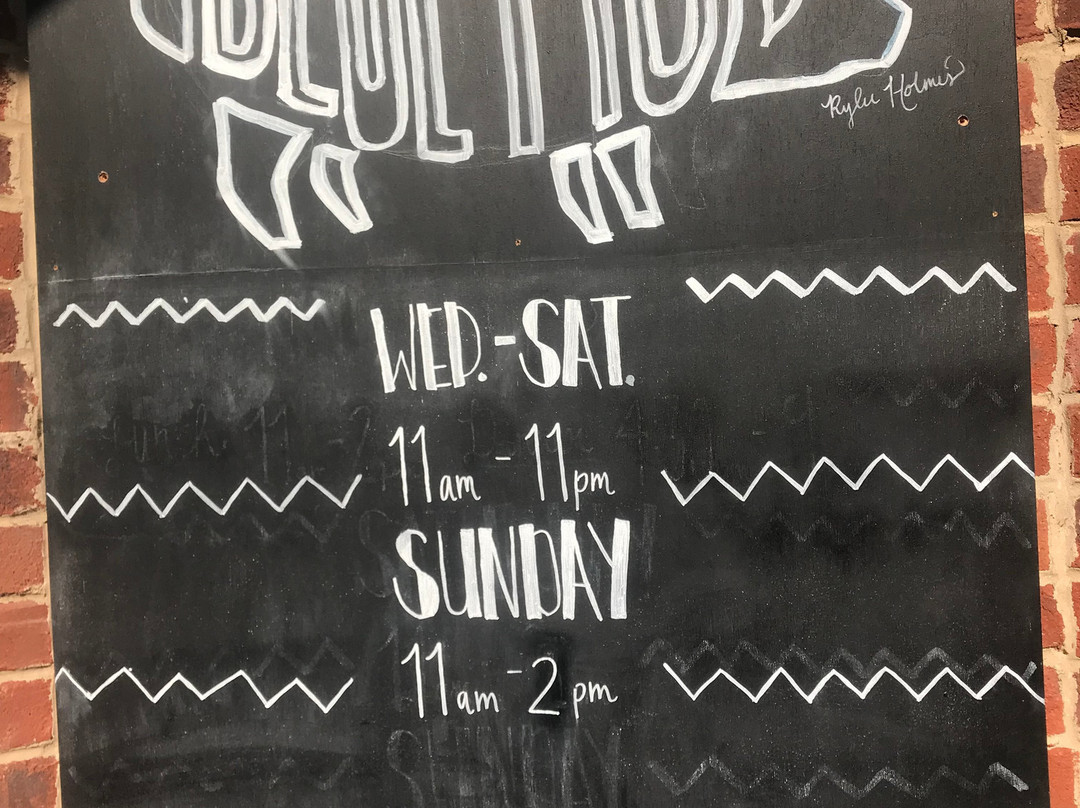 Rylee Holmes
WED.-SAT.
11am - 11pm
SUNDAY
11am - 2pm
SUNDAY